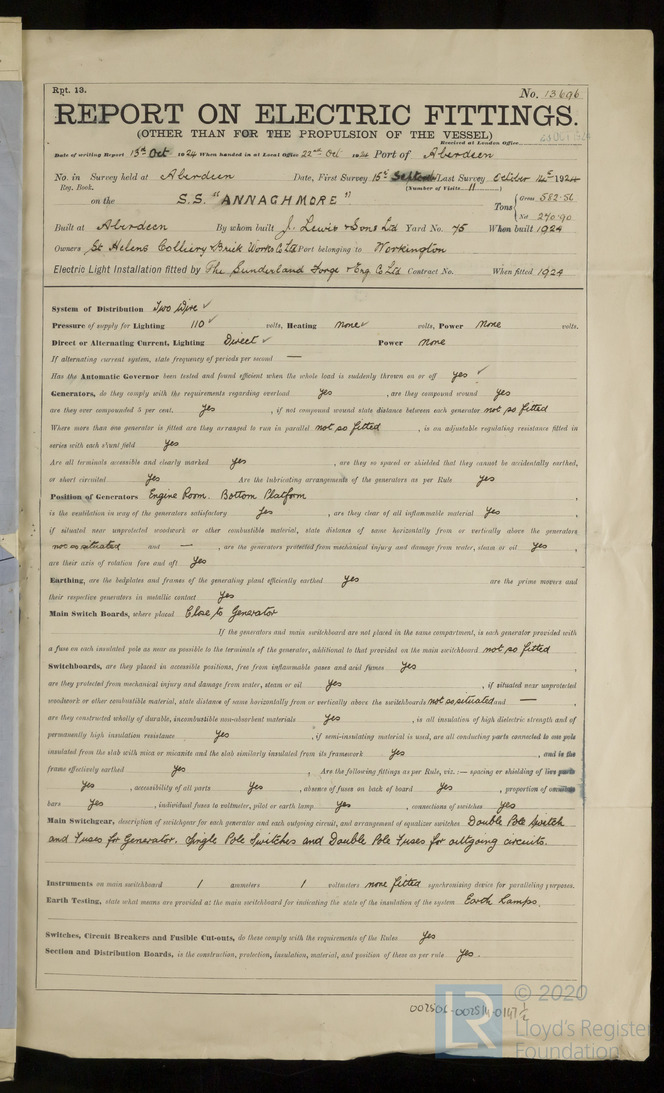 Rpt. 13.
No. 13696
REPORT ON ELECTRIC FITTINGS.
(OTHER THAN FOR THE PROPULSION OF THE VESSEL)
Received at London Office
Date of writing Report 13th Oct 1924 When handed in at Local Office 22nd Oct 1924 Port of Aberdeen
No. in Survey held at Aberdeen Date, First Survey 15th Last Survey October 14th 1924
Reg. Book. (Number of Visits 11)
on the S.S. "ANNAGHMORE" Tons { Gross 582.56
Net 270.90
Built at Aberdeen By whom built J. Lewis & Sons Ltd Yard No. 75 When built 1924
Owners St Helens Colliery & Brick Works Co Ltd Port belonging to Workington
Electric Light Installation fitted by The Sunderland Forge & Eng. Co Ltd Contract No. When fitted 1924
System of Distribution Two Wire ✓
Pressure of supply for Lighting 110 ✓ volts, Heating None ✓ volts, Power None volts.
Direct or Alternating Current, Lighting Direct ✓ Power None
If alternating current system, state frequency of periods per second —
Has the Automatic Governor been tested and found efficient when the whole load is suddenly thrown on or off yes ✓
Generators, do they comply with the requirements regarding overload yes , are they compound wound yes
are they over compounded 5 per cent. yes , if not compound wound state distance between each generator not so fitted
Where more than one generator is fitted are they arranged to run in parallel not so fitted , is an adjustable regulating resistance fitted in
series with each shunt field yes
Are all terminals accessible and clearly marked yes , are they so spaced or shielded that they cannot be accidentally earthed,
or short circuited yes Are the lubricating arrangements of the generators as per Rule yes
Position of Generators Engine Room. Bottom Platform
is the ventilation in way of the generators satisfactory yes , are they clear of all inflammable material yes ,
if situated near unprotected woodwork or other combustible material, state distance of same horizontally from or vertically above the generators
not so situated and — , are the generators protected from mechanical injury and damage from water, steam or oil yes ,
are their axis of rotation fore and aft yes
Earthing, are the bedplates and frames of the generating plant efficiently earthed yes are the prime movers and
their respective generators in metallic contact yes
Main Switch Boards, where placed Close to Generator
If the generators and main switchboard are not placed in the same compartment, is each generator provided with
a fuse on each insulated pole as near as possible to the terminals of the generator, additional to that provided on the main switchboard not so fitted
Switchboards, are they placed in accessible positions, free from inflammable gases and acid fumes yes ,
are they protected from mechanical injury and damage from water, steam or oil yes , if situated near unprotected
woodwork or other combustible material, state distance of same horizontally from or vertically above the switchboards not so situated and — ,
are they constructed wholly of durable, incombustible non-absorbent materials yes , is all insulation of high dielectric strength and of
permanently high insulation resistance yes , if semi-insulating material is used, are all conducting parts connected to one pole
insulated from the slab with mica or micanite and the slab similarly insulated from its framework yes , and is the
frame effectively earthed yes , Are the following fittings as per Rule, viz. :— spacing or shielding of live parts
yes , accessibility of all parts yes , absence of fuses on back of board yes , proportion of omnibus
bars yes , individual fuses to voltmeter, pilot or earth lamp yes , connections of switches yes .
Main Switchgear, description of switchgear for each generator and each outgoing circuit, and arrangement of equalizer switches Double Pole Switch
and Fuses for Generator. Single Pole Switches and Double Pole Fuses for outgoing circuits.
Instruments on main switchboard 1 ammeters 1 voltmeters none fitted synchronising device for paralleling purposes.
Earth Testing, state what means are provided at the main switchboard for indicating the state of the insulation of the system Earth Lamps.
Switches, Circuit Breakers and Fusible Cut-outs, do these comply with the requirements of the Rules yes
Section and Distribution Boards, is the construction, protection, insulation, material, and position of these as per rule yes.
002506-002514-0147 1/2
© 2020
LR
Lloyd's Register
Foundation